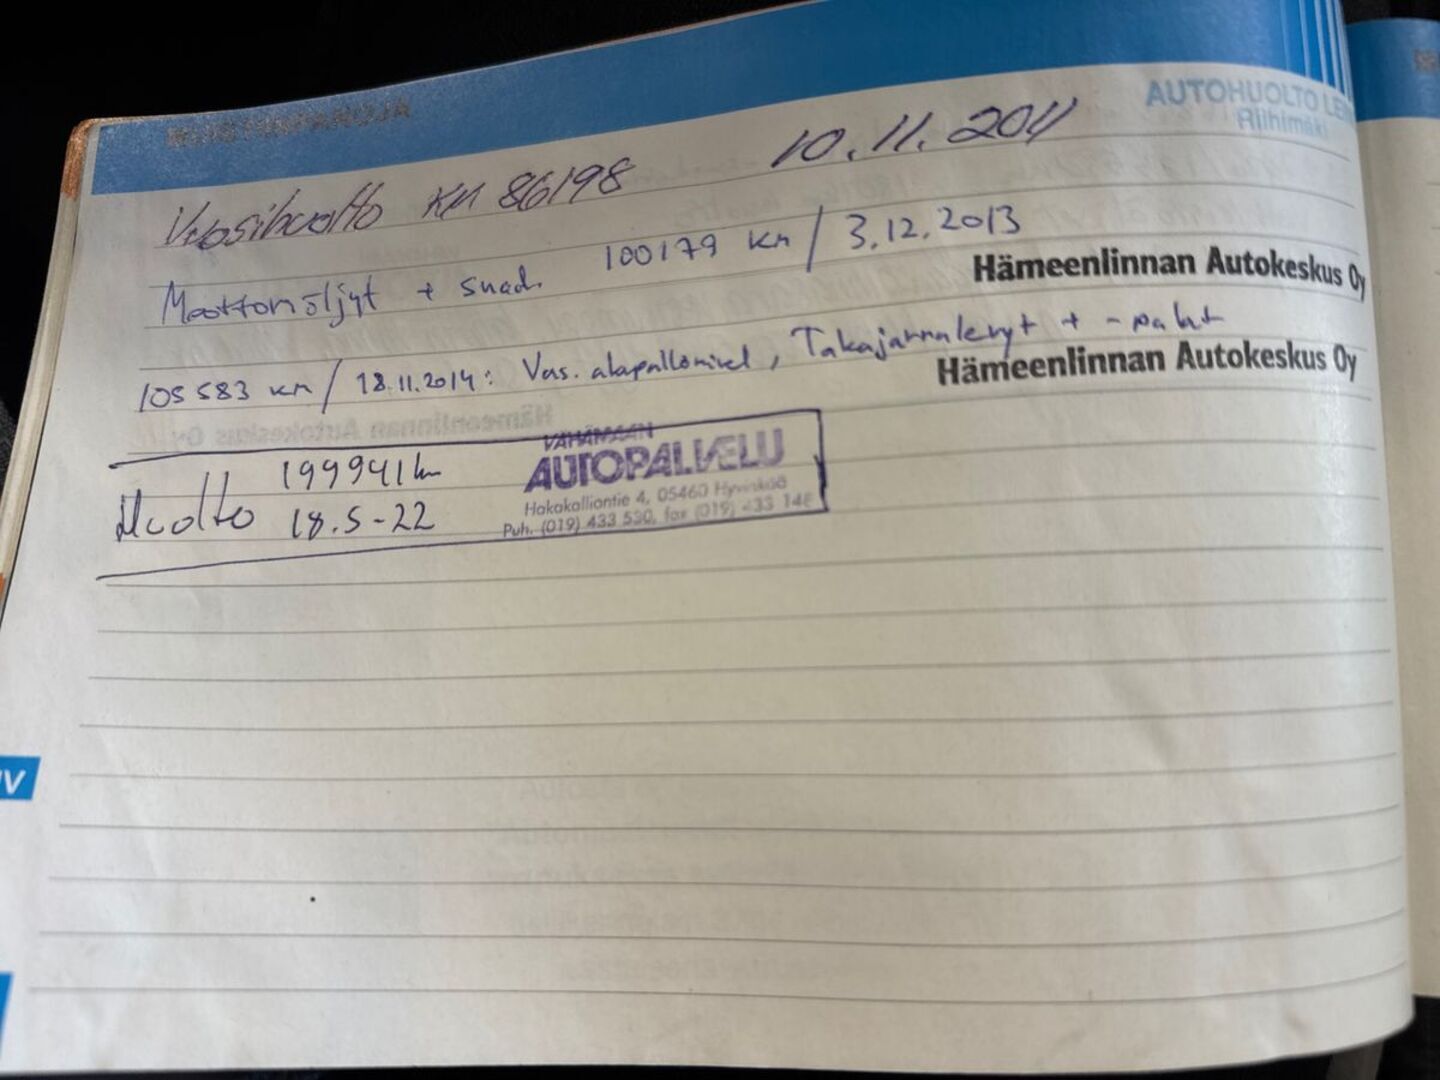 MUISTIINPANOJA
AUTOHUOLTO
Riihimäki
Vuosihuolto KM 86198 10.11.2011
Moottoriöljyt + suod. 100179 km / 3.12.2013
Hämeenlinnan Autokeskus Oy
105583 km / 18.11.2014: Vas. alapallonivel, Takajarrulevyt + -palat
Hämeenlinnan Autokeskus Oy
Huolto 199941 km
18.5-22
VÄHÄMAAN
AUTOPALVELU
Hakakalliontie 4, 05460 Hyvinkää
Puh. (019) 433 530, fax (019) 433